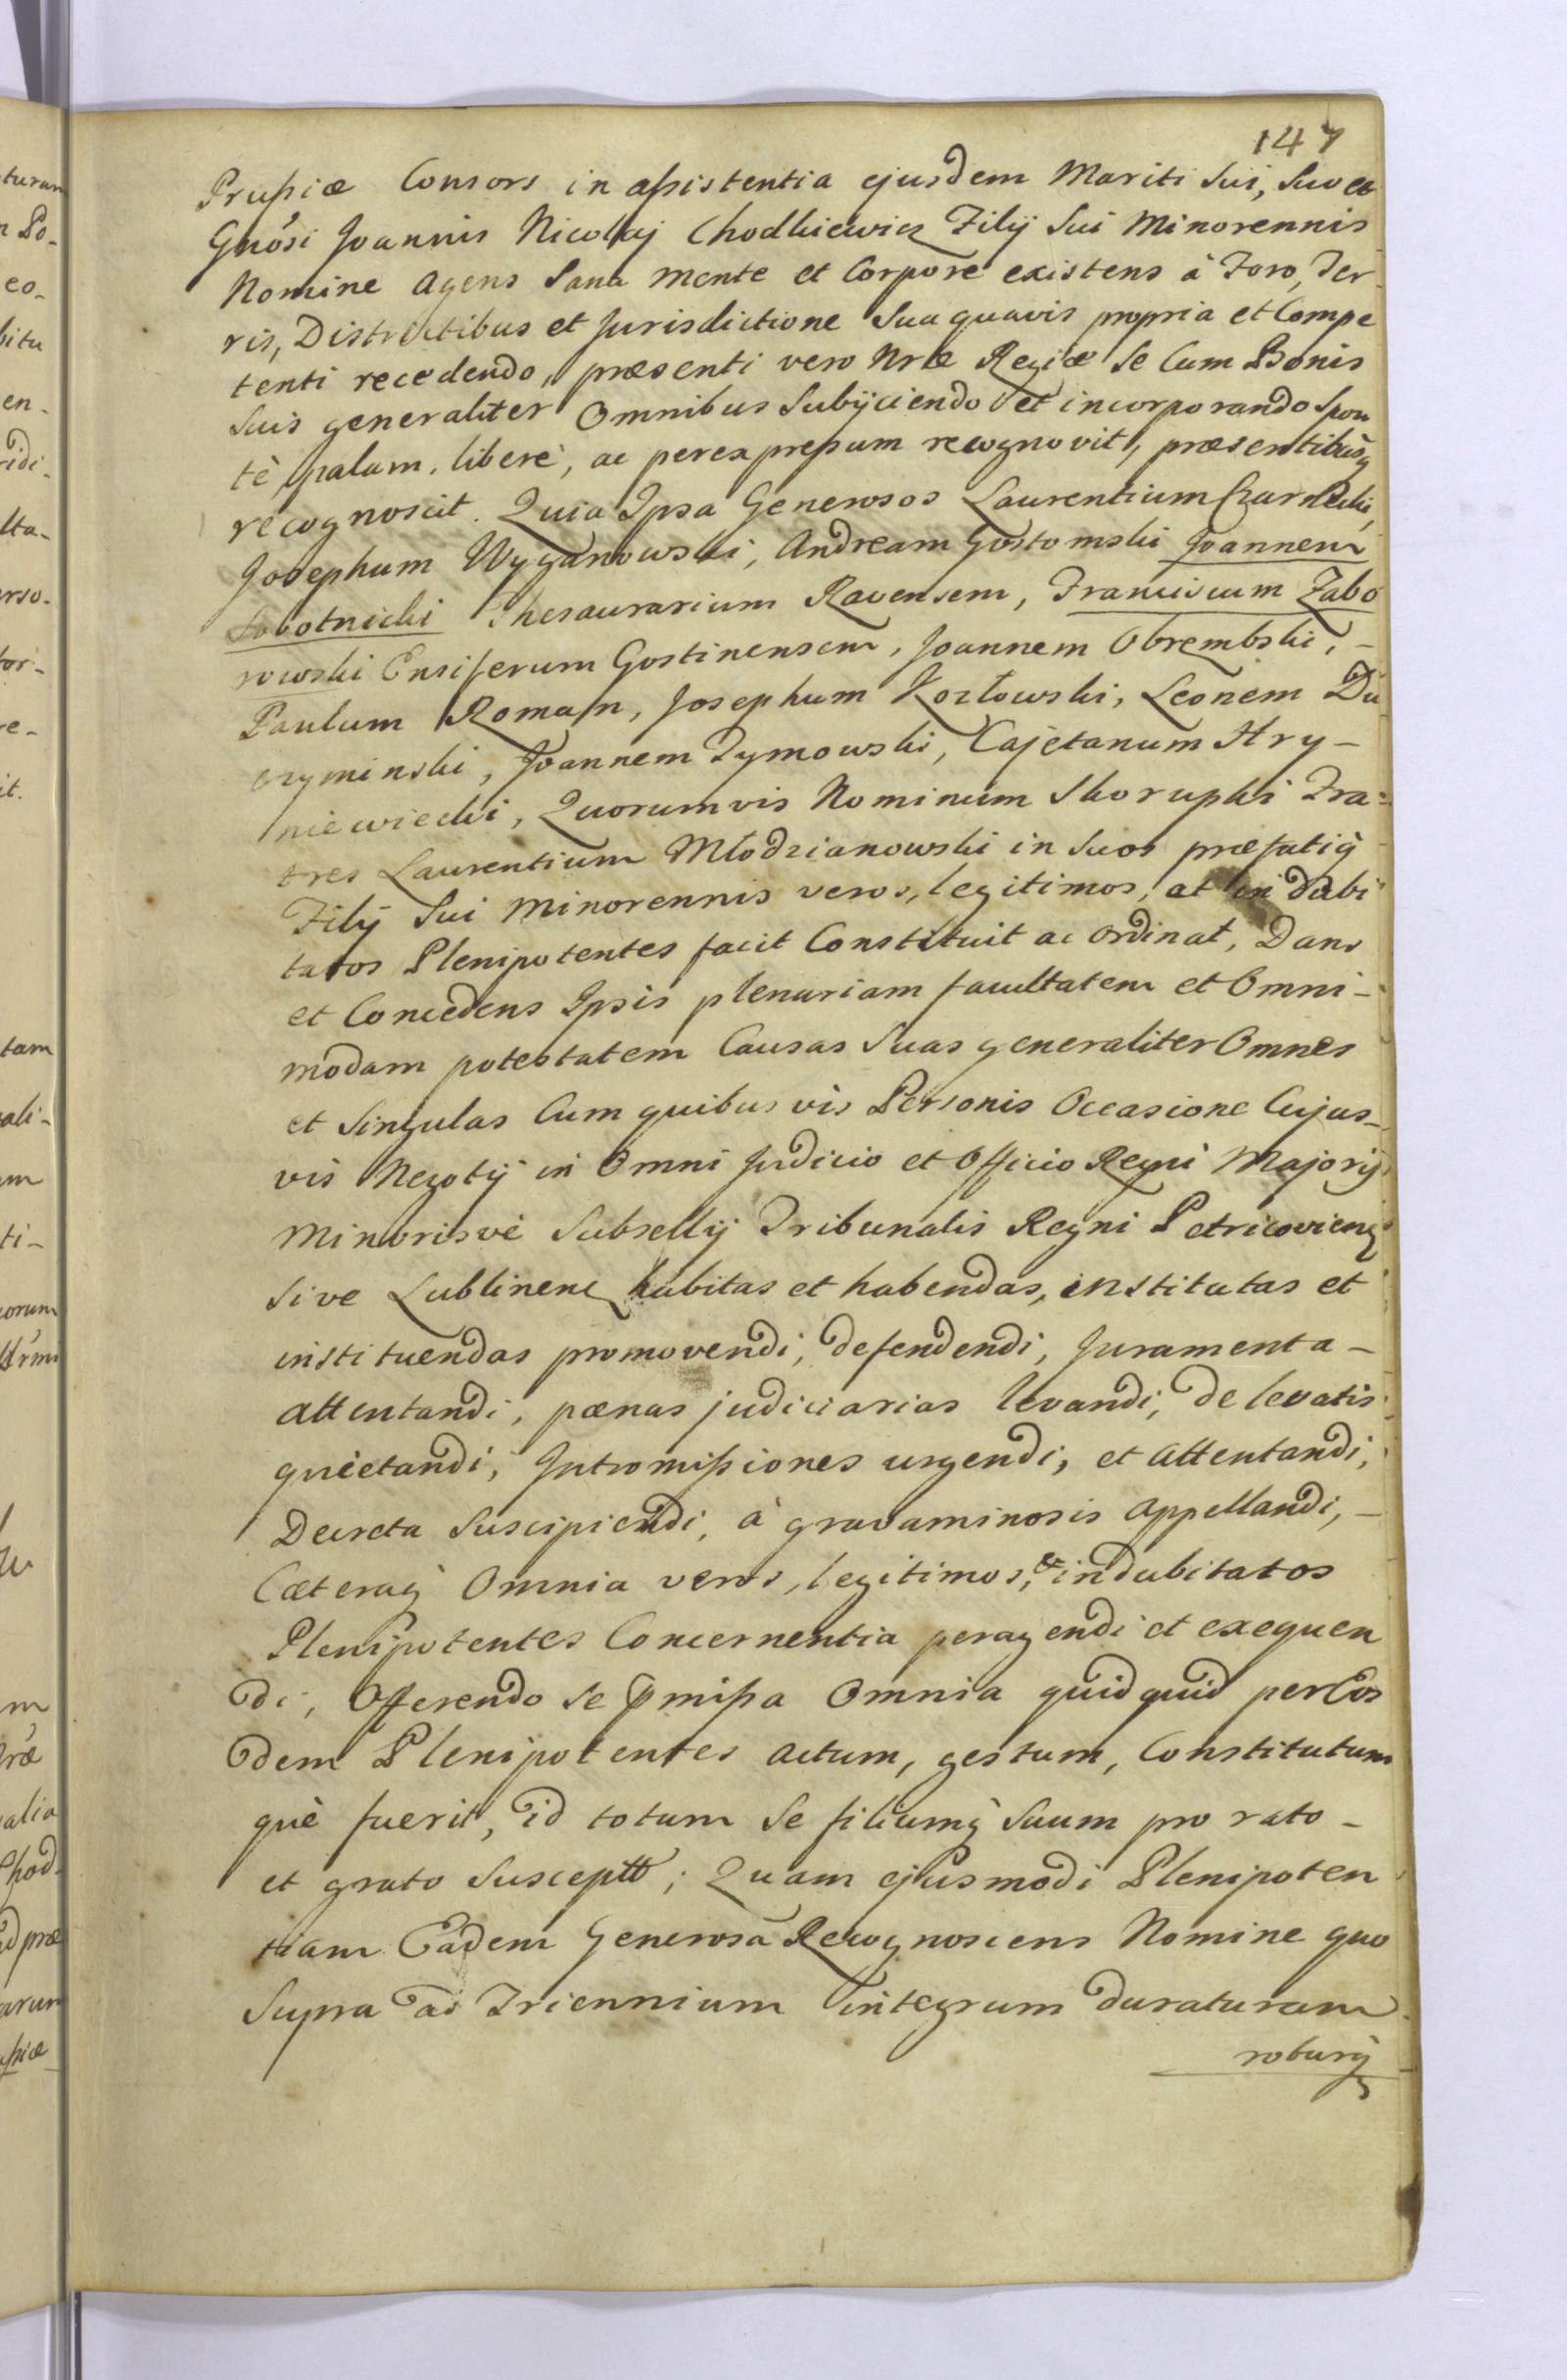 147
Prußiæ Consors in aßistentia ejusdem Mariti Sui, Suo et
Gnósi Joannis Nicolaj Chodkiewicz Filÿ Sui Minorennis
Nomine agens Sana mente et Corpore existens à Foro, Ter
ris, Districtibus et Jurisdictione Sua quavis propria et Compe
tenti recedendo, præsenti vero Nræ Regiæ Se Cum Bonis
Suis generaliter Omnibus Subÿciendo et incorporando Spon
tè, palam, liberè, ac per expreßum recognovit, præsentibusq
recognoscit. Quia Ipsa Generosos Laurentium Czarnecki,
Josephum Wyganowski, Andream Gostomski Joannem
Sobotnicki Thesaurarium Ravensem, Franciscum Zabo
rowski Ensiferum Gostinensem, Joannem Obrembski, -
Paulum Roman, Josephum Kozłowski, Leonem Du
czyminski, Joannem Tymowski, Cajetanum Hry-
niewiecki, Quorumvis Nominum Skorupki Fra=
tres Laurentium Młodzianowski in Suos præfatiq̀
Filÿ Sui Minorennis veros, legitimos, et indubi
tatos Plenipotentes facit Constituit ac Ordinat, Dans
et Concedens Ipsis plenariam facultatem et Omni-
modam potestatem Causas Suas generaliter Omnes
et Singulas Cum quibus vis Personis Occasione Cujus-
vis Negotÿ in Omni Judicio et Officio Regni Majoris
Minorisvè Subsellÿ Tribunalis Regni Petricovien
sive Lublinen habitas et habendas, institutas et
instituendas promovendi, defendendi, Juramenta-
attentandi, pœnas judiciarias levandi, de levatis
quietandi, Intromißiones urgendi, et attentandi,
Decreta Suscipiendi, à gravaminosis appellandi, -
Cæteraq̀ Omnia veros, legitimos, & indubitatos
Plenipotentes Concernentia peragendi et exequen
di, Offerendo Se p̄mißa Omnia quidquid per Eos
dem Plenipotentes actum, gestum, Constitutum
què fuerit, id totum Se filiumq̀ Suum pro rato -
et grato Suscept; Quam ejusmodi Plenipoten
tiam Eadem Generosa Recognoscens Nomine quo
Supra ad Triennium integrum duraturam
roburq̀